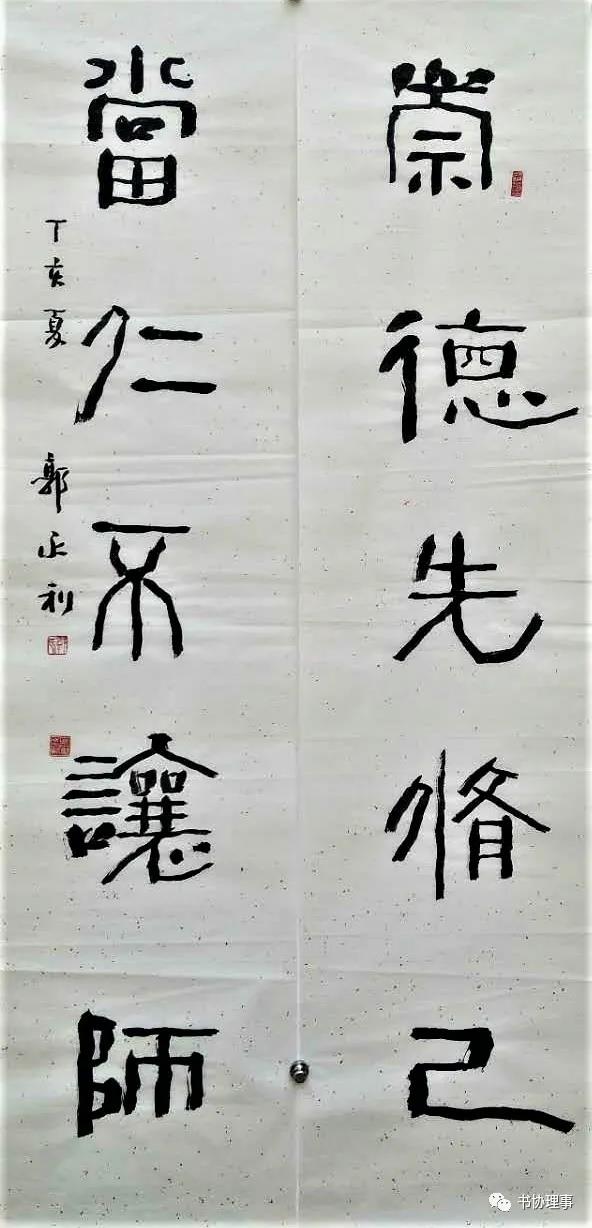 崇德先脩己
當仁不讓師
丁亥夏
郭正利
书协理事